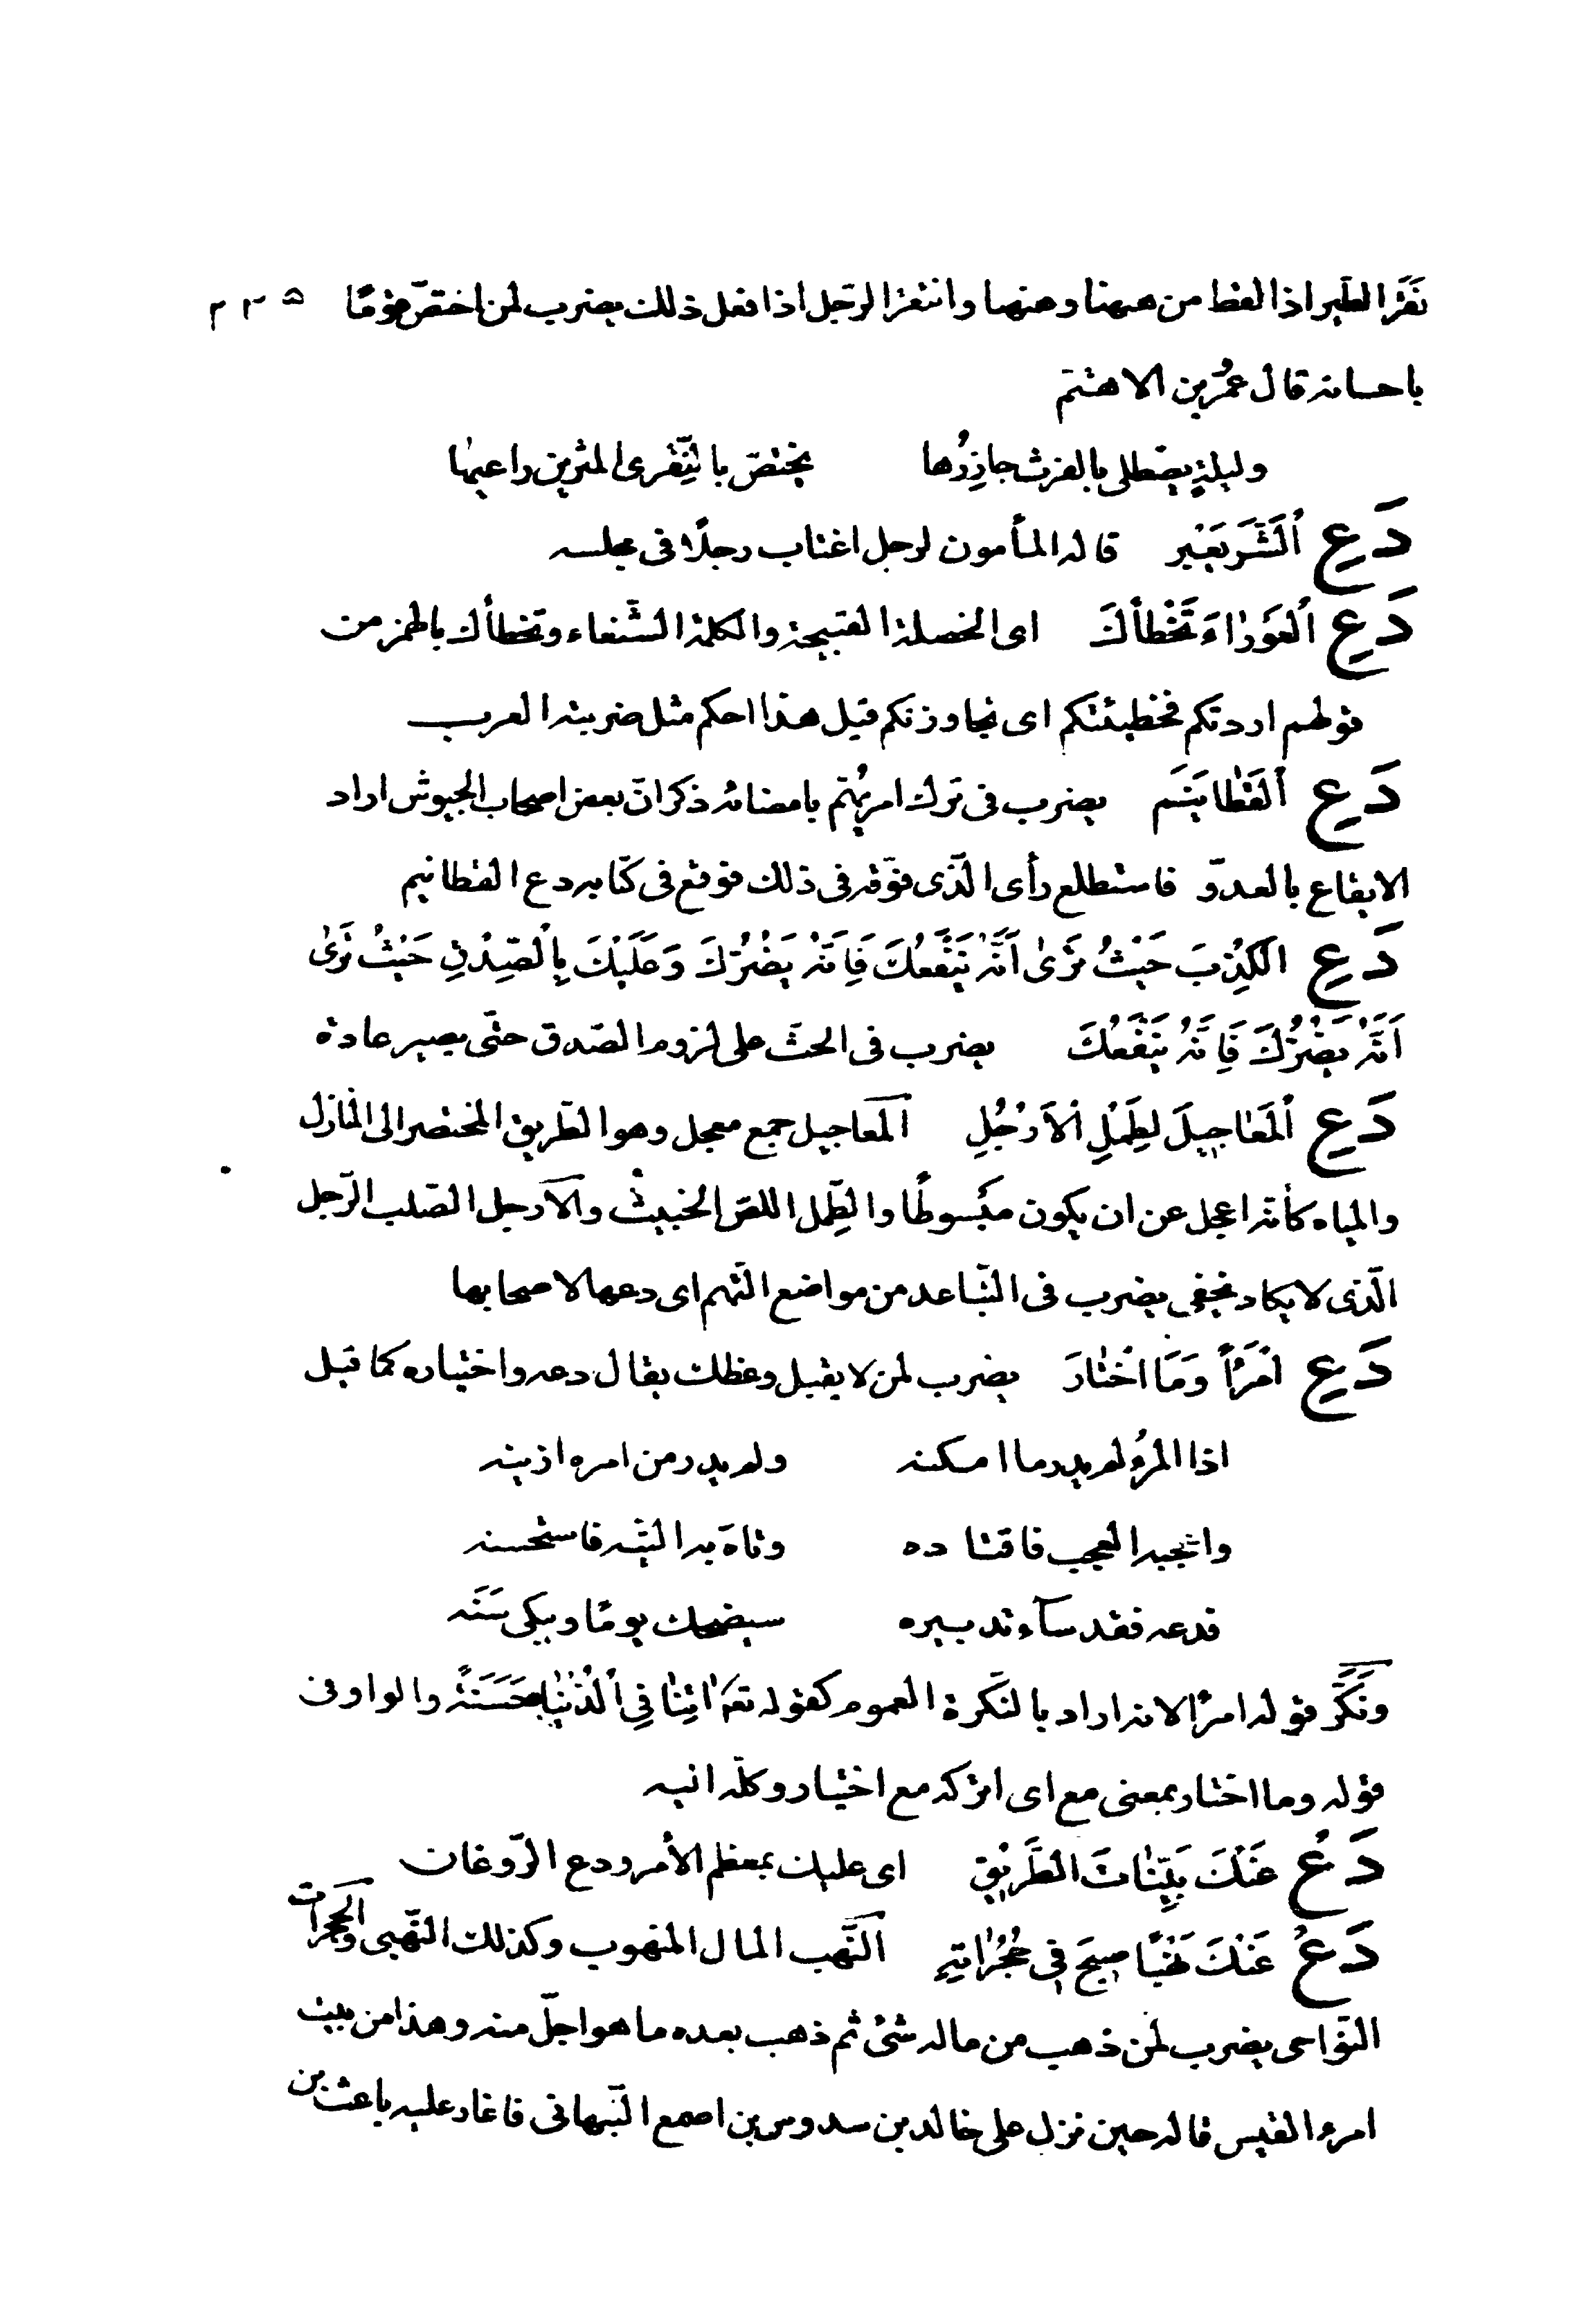 نَقَرَ الطّير اذا لقط من هيهنا وهنهنا وانتقر الرّجل اذا فعل ذلك يضرب لمن اختصّ قومًا ٢٣٥
باحسانه قال عمرُو بن الاهتم
وليلةٍ يصطلى بالفرث جازِرُها يختصّ بالنّقرى المثرين داعيها
دَعِ اُلشَّرَ يَعْبُر قاله المأمون لرجل اغتاب رجلًا فى مجلسه
دَعِ اُلعَوْرٰاءَ تَخْطَأْكَ اى الخصلة القبيحة والكلمة الشّنعاء وتخطأك بالهمز من
قولهم اردتكم فخطيئتكم اى تجاوزتكم قيل هذا احكم مثل ضربته العرب
دَعِ اُلقَطٰا يَنَمْ يضرب فى ترك امر يُهتم بامضائه ذكر انّ بعض اصحاب الجيوش اراد
الايقاع بالعدوّ فاستطلع رأى الّذى فوقه فى ذلك فوقع فى كتابه دع القطا ينم
دَعِ الْكِذْبَ حَيْثُ تَرٰى اَنَّهُ يَنْفَعُكَ فَاِنَّهُ يَضُرُّكَ وَعَلَيْكَ بِالْصِّدْقِ حَيْثُ تَرٰى
اَنَّهُ يَضُرُّكَ فَاِنَّهُ يَنْفَعُكَ يضرب فى الحثّ على لزوم الصّدق حتّى يصير عادة
دَعِ اُلمَعٰاجِيلَ لِطِمْلٍ اُلاَرْجُلِ المعاجيل جمع معجل وهو الطّريق المختصر الى المنازل
والمياه كأنّه اعجل عن ان يكون مبسوطًا والطِّمل اللصّ الخبيث والآرجل الصّلب الرّجل
الّذى لا يكاد يخفى يضرب فى التّباعد من مواضع التّهم اى دعها لاصحابها
دَعِ اِمْرَءًا وَمَا اخْتٰارَ يضرب لمن لا يقبل وعظك يقال دعه واختياره كما قيل
اذا المرءُ لم يدر ما امكنه ولم يدر من امره ازينه
واعجبه العجب فاقتاده وتاهَ به التّيه فاستحسنه
فدعه فقد سآء تدبيره سيضحك يومًا ويبكى سَنَه
ونَكَّر قوله امرًا لانه اراد بالنّكرة العموم كقوله تعَ اٰتِنٰا فِى اُلدُّنْيٰا حَسَنَةً والواو فى
قوله وما اختار بمعنى مع اى اتركه مع اختيار وكله اليه
دَعْ عَنْكَ بَيِّنٰاتَ الطَّرِيْقِ اى عليك بمعظم الأمر ودع الرّوغان
دَعْ عَنْكَ نَهْبًا صِيحَ فِى حُجُرٰاتِهِ النَّهب المال المنهوب وكذلك النّهبى والحجرات
النّواحى يضرب لمن ذهب من ماله شئ ثم ذهب بعده ما هو اجلّ منه وهذا من بيت
امرء القيس قاله حين نزل على خالد بن سدوس بن اصمع النّبهانى فاغار عليه باعث بن